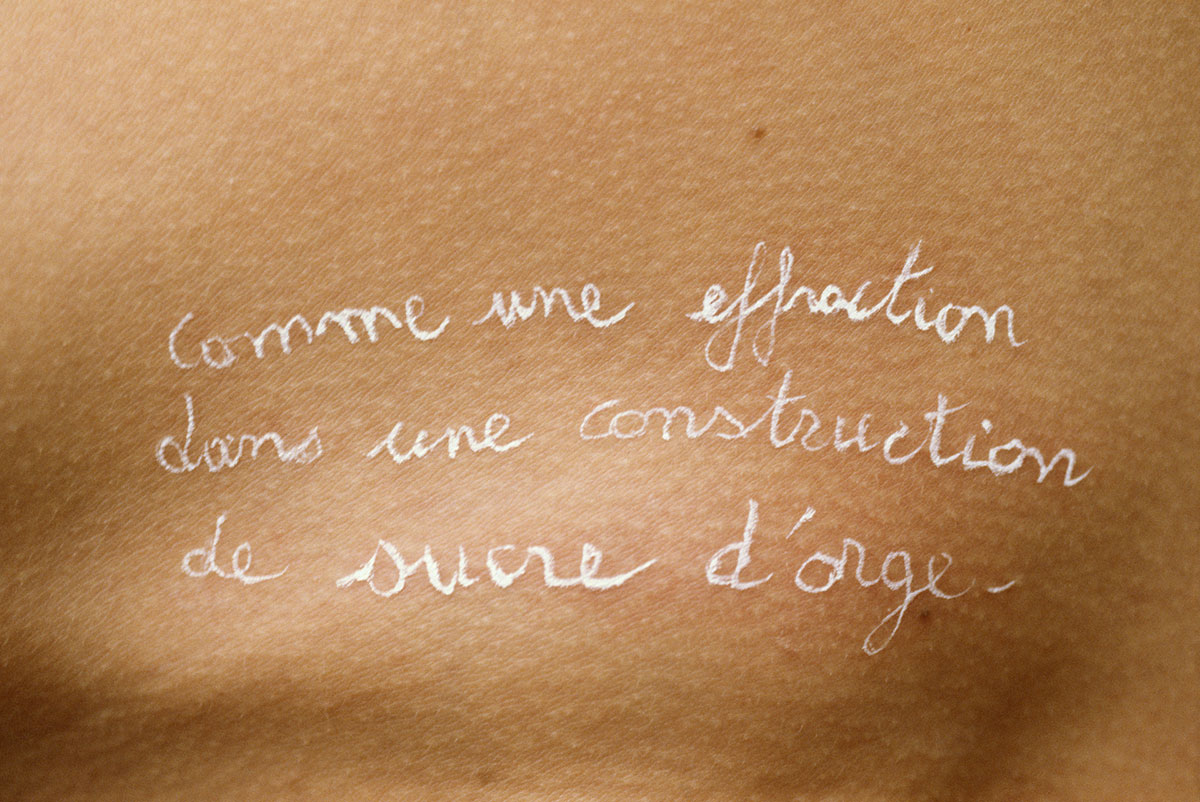 comme une effraction
dans une construction
de sucre d'orge-